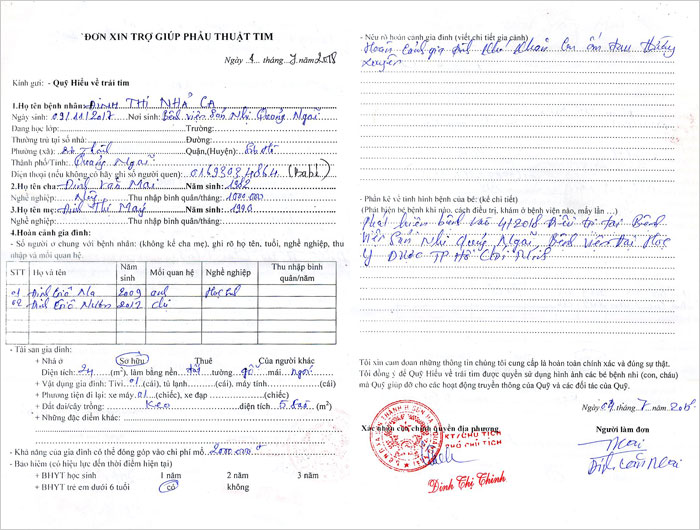 ĐƠN XIN TRỢ GIÚP PHẪU THUẬT TIM
Ngày 9 tháng 7 năm 2018
Kính gửi: - Quỹ Hiểu về trái tim
1.Họ tên bệnh nhân: ĐINH THỊ NHẢ CA
Ngày sinh: 09/11/2017 Nơi sinh: Bệnh viện Sản Nhi Quảng Ngãi
Đang học lớp: Trường:
Thường trú tại số nhà: Đường:
Phường (xã): Quận,(Huyện):
Thành phố/Tỉnh: Quảng Ngãi
Điện thoại (nếu không có hãy ghi số người quen): 01698084864
2.Họ tên cha: Đinh Văn Mai Năm sinh: 1982
Nghề nghiệp: Nông Thu nhập bình quân/tháng: 1000.000
3.Họ tên mẹ: Đinh Thị May Năm sinh: 1990
Nghề nghiệp: Thu nhập bình quân/tháng:
4.Hoàn cảnh gia đình:
- Số người ở chung với bệnh nhân: (không kể cha mẹ), ghi rõ họ tên, tuổi, nghề nghiệp, thu
nhập và mối quan hệ:
STT Họ và tên Năm sinh Mối quan hệ Nghề nghiệp Thu nhập bình quân/năm
01 Đinh 2009 anh Học sinh
02 Đinh 2012 chị
- Tài sản gia đình:
+ Nhà ở Sở hữu Thuê Của người khác
Diện tích: 24 (m²), làm bằng nền đất tường gỗ mái ngói
+ Vật dụng gia đình: Tivi 01 (cái), tủ lạnh (cái), máy tính (cái)
+ Phương tiện đi lại: xe máy 01 (chiếc), xe đạp (chiếc)
+ Đất đai/cây trồng: Keo diện tích 5 sào (m²)
+ Những đặc điểm khác:
- Khả năng của gia đình có thể đóng góp vào chi phí mổ 2000.000 đ
- Bảo hiểm (có hiệu lực đến thời điểm hiện tại)
+ BHYT học sinh 1 năm 2 năm 3 năm
+ BHYT trẻ em dưới 6 tuổi có không
- Nêu rõ hoàn cảnh gia đình (viết chi tiết gia cảnh)
Hoàn cảnh gia đình khó khăn con ốm đau thường
xuyên
- Phần kể về tình hình bệnh của bé: (kể chi tiết)
(Phát hiện bệnh khi nào, cách điều trị, khám ở bệnh viện nào, mấy lần ...)
Phát hiện bệnh vào 4/2018 điều trị tại Bệnh
viện Sản Nhi Quảng Ngãi, Bệnh viện Đại Học
Y Dược TP Hồ Chí Minh
Tôi xin cam đoan những thông tin chúng tôi cung cấp là hoàn toàn chính xác và đúng sự thật.
Tôi đồng ý để Quỹ Hiểu về trái tim được quyền sử dụng hình ảnh các bé bệnh nhi (con, cháu)
mà Quỹ giúp đỡ cho các hoạt động truyền thông của Quỹ và các đối tác của Quỹ.
Ngày 09 tháng 7 năm 2018
Xác nhận của chính quyền địa phương Người làm đơn
KT/CHỦ TỊCH
PHÓ CHỦ TỊCH
Mai
Đinh Thị Chinh Đinh Văn Mai